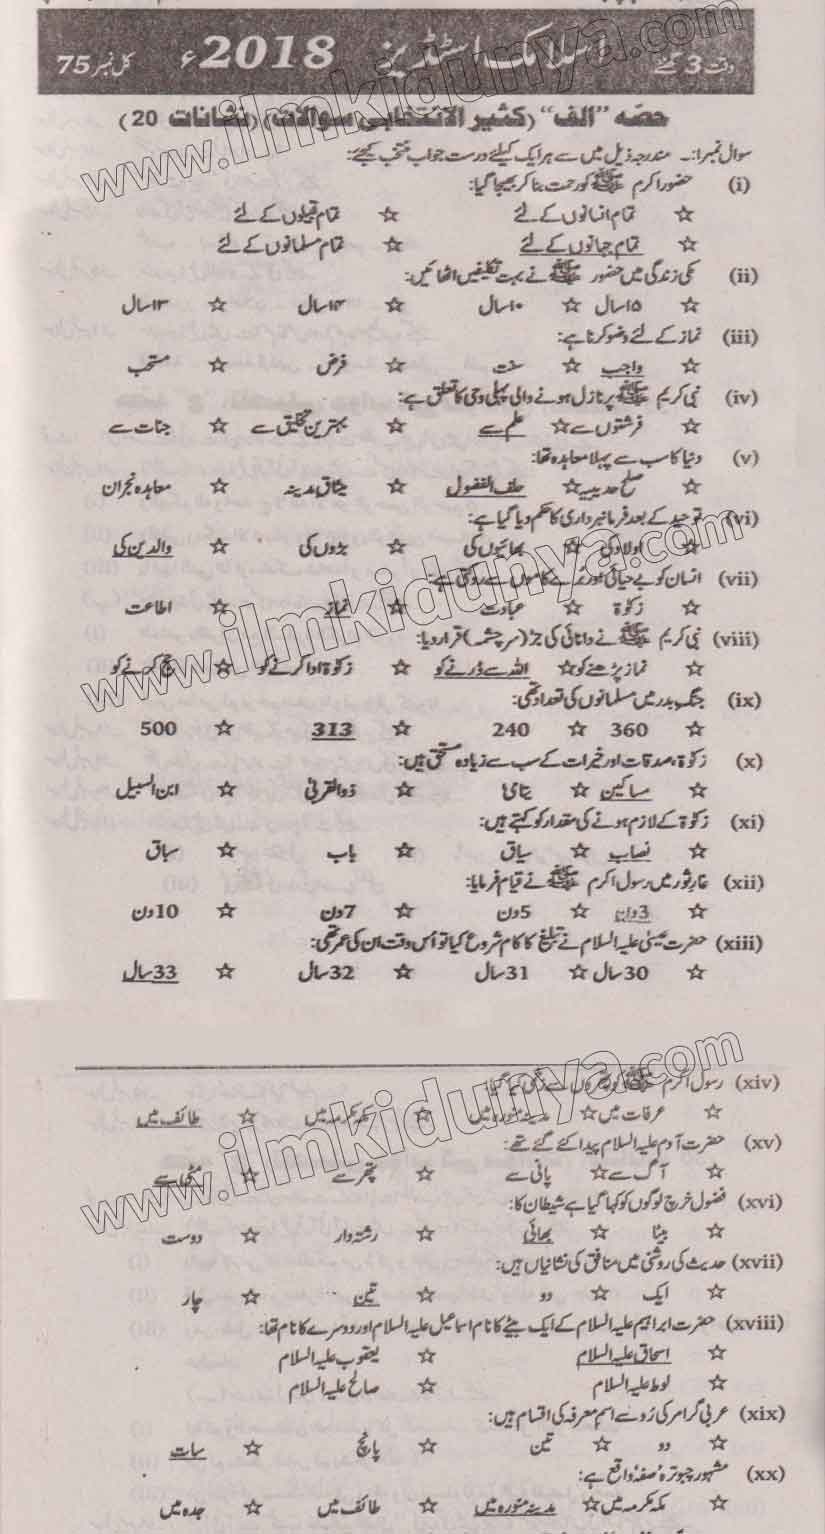 وقت 3 گھنٹے اسلامک اسٹڈیز 2018ء کل نمبر 75
حصّہ ”الف“ (کثیر الانتخابی سوالات) (نشانات 20)
سوال نمبر۱:۔ مندرجہ ذیل میں سے ہر ایک کیلئے درست جواب منتخب کیجئے:
(i) حضور اکرم ﷺ کو رحمت بنا کر بھیجا گیا:
☆ تمام انسانوں کے لئے ☆ تمام قبیلوں کے لئے
☆ تمام جہانوں کے لئے ☆ تمام مسلمانوں کے لئے
(ii) مکی زندگی میں حضور ﷺ نے بہت تکلیفیں اٹھائیں:
☆ ۱۵سال ☆ ۱۰سال ☆ ۱۴سال ☆ ۱۳سال
(iii) نماز کے لئے وضو کرنا ہے:
☆ واجب ☆ سنت ☆ فرض ☆ مستحب
(iv) نبی کریم ﷺ پر نازل ہونے والی پہلی وحی کا تعلق ہے:
☆ فرشتوں سے ☆ علم سے ☆ بہترین تخلیق سے ☆ جنات سے
(v) دنیا کا سب سے پہلا معاہدہ تھا:
☆ صلح حدیبیہ ☆ حلف الفضول ☆ میثاق مدینہ ☆ معاہدہ نجران
(vi) توحید کے بعد فرمانبرداری کا حکم دیا گیا ہے:
☆ اولاد کی ☆ بھائیوں کی ☆ بڑوں کی ☆ والدین کی
(vii) انسان کو بے حیائی اور بُرے کاموں سے روکتی ہے:
☆ زکوٰۃ ☆ عبادت ☆ نماز ☆ اطاعت
(viii) نبی کریم ﷺ نے دانائی کی جڑ (سرچشمہ) قرار دیا:
☆ نماز پڑھنے کو ☆ اللہ سے ڈرنے کو ☆ زکوٰۃ ادا کرنے کو ☆ حج کرنے کو
(ix) جنگ بدر میں مسلمانوں کی تعداد تھی:
☆ 360 ☆ 240 ☆ 313 ☆ 500
(x) زکوٰۃ، صدقات اور خیرات کے سب سے زیادہ مستحق ہیں:
☆ مساکین ☆ یتامیٰ ☆ ذوالقربیٰ ☆ ابن السبیل
(xi) زکوٰۃ کے لازم ہونے کی مقدار کو کہتے ہیں:
☆ نصاب ☆ سیاق ☆ باب ☆ سباق
(xii) غارِ ثور میں رسول اکرم ﷺ نے قیام فرمایا:
☆ 3دن ☆ 5دن ☆ 7دن ☆ 10دن
(xiii) حضرت عیسیٰ علیہ السلام نے تبلیغ کا کام شروع کیا تو اُس وقت ان کی عمر تھی:
☆ 30سال ☆ 31سال ☆ 32سال ☆ 33سال
(xiv) رسول اکرم ﷺ کو پتھروں سے زخمی کیا گیا:
☆ عرفات میں ☆ مدینہ منورہ میں ☆ مکہ مکرمہ میں ☆ طائف میں
(xv) حضرت آدم علیہ السلام پیدا کئے گئے تھے:
☆ آگ سے ☆ پانی سے ☆ پتھر سے ☆ مٹی سے
(xvi) فضول خرچ لوگوں کو کہا گیا ہے شیطان کا:
☆ بیٹا ☆ بھائی ☆ رشتہ دار ☆ دوست
(xvii) حدیث کی روشنی میں منافق کی نشانیاں ہیں:
☆ ایک ☆ دو ☆ تین ☆ چار
(xviii) حضرت ابراہیم علیہ السلام کے ایک بیٹے کا نام اسماعیل علیہ السلام اور دوسرے کا نام تھا:
☆ اسحاق علیہ السلام ☆ یعقوب علیہ السلام
☆ لوط علیہ السلام ☆ صالح علیہ السلام
(xix) عربی گرامر کی رُو سے اسم معرفہ کی اقسام ہیں:
☆ دو ☆ تین ☆ پانچ ☆ سات
(xx) مشہور چبوترہ صفہ واقع ہے:
☆ مکہ مکرمہ میں ☆ مدینہ منورہ میں ☆ طائف میں ☆ جدہ میں
www.ilmkidunya.com
www.ilmkidunya.com
www.ilmkidunya.com